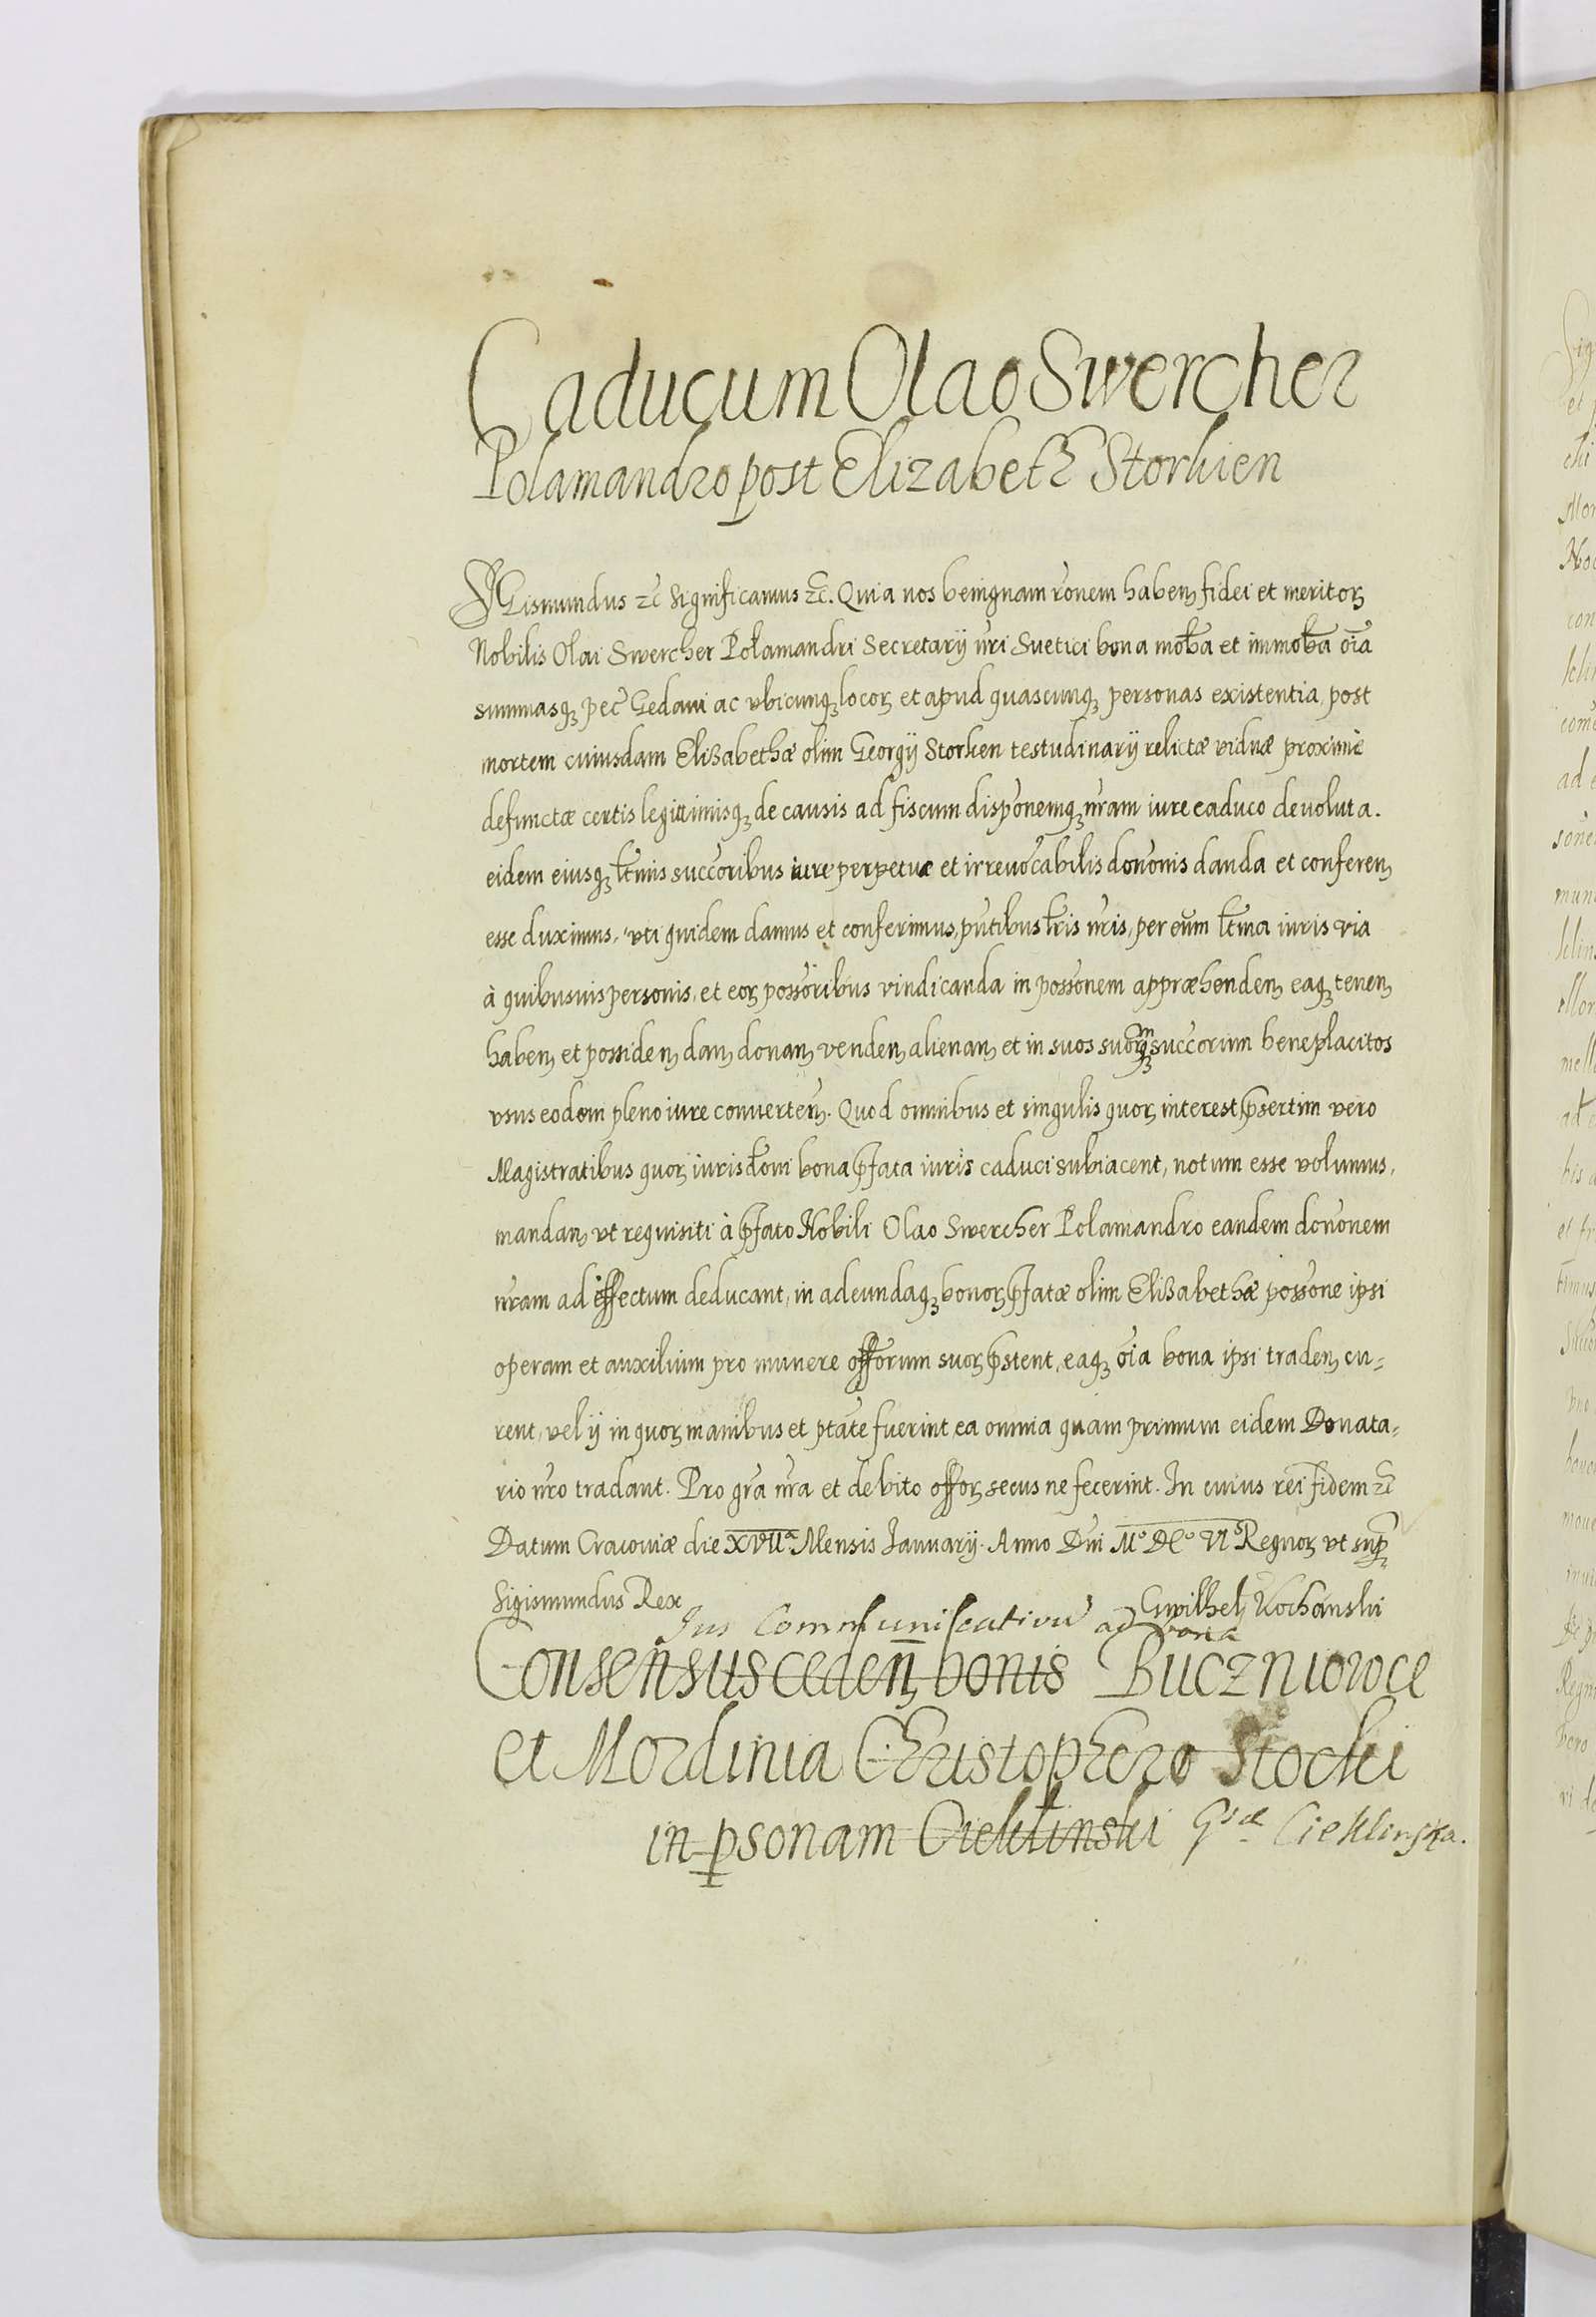 Caducum Olao Swercher
Polamandro post Elizabeth Storkien
SIGismundus zc̃ Significamus zc̃. Quia nos benignam rõnem haben̨ fidei et meritor̨
Nobilis Olai Swercher Polamandri Secretarÿ nr̃i Suetici bona mob̃a et immob̃a oĩa
summasq̨ pec̃ Gedani ac vbicunq̨ locor̨ et apud quascunq̨ personas existentia, post
mortem cuiusdam Elisabethæ olim Georgÿ Storken testudinarÿ relictæ viduæ proximè
defunctæ certis legittimisq̨ de causis ad fiscum dispõnemq̨ nr̃am iure caduco devoluta.
eidem eiusq̨ lt̃mis succõribus iure perpetuæ et irreuocabilis donõnis danda et conferen̨
esse duximus, vti quidem damus et conferimus, pñtibus lr̃is nr̃is, per eũm lt̃ma iuris via
à quibusuis personis, et eor̨ possõribus vindicanda in possõnem appræhenden̨ eaq̨ tenen̨
haben̨ et possiden̨ dan̨ donan̨ venden̨ alienan̨ et in suos suorumq̨ succorum beneplacitos
vsus eodem pleno iure conuerten̨. Quod omnibus et singulis quor̨ interest p̃sertim vero
Magistratibus quor̨ iurisd̃oni bona p̃fata iuris caduci subiacent, notum esse volumus,
mandan̨ vt requisiti à p̃fato Nobili Olao Swercher Polamandro eandem donõnem
nr̃am ad effectum deducant, in adeundaq̨ bonor̨ p̃fatæ olim Elisabethæ possõne ipsi
operam et auxilium pro munere offõrum suor̨ p̃stent, eaq̨ oĩa bona ipsi traden̨ cu=
rent, vel ÿ in quor̨ manibus et ptãte fuerint ea omnia quam primum eidem Donata=
rio nr̃o tradant. Pro gr̃a nr̃a et debito offor̨ secus ne fecerint. In cuius rei fidem zc̃
Datum Cracouiæ die XVIIᵃ Mensis Januarÿ. Anno Dñi Mᵒ DCᵒ VIᵒ Regnor̨ vt sup̃
Sigismundus Rex
Gwilhel̨ Kochanski
Jus Communicativũ ad bona
Consensus ceden̨ bonis Buczniowce
et Mordinia Christophero Stocki
in p̱sonam Cieklinski Gsæ Cieklinska.